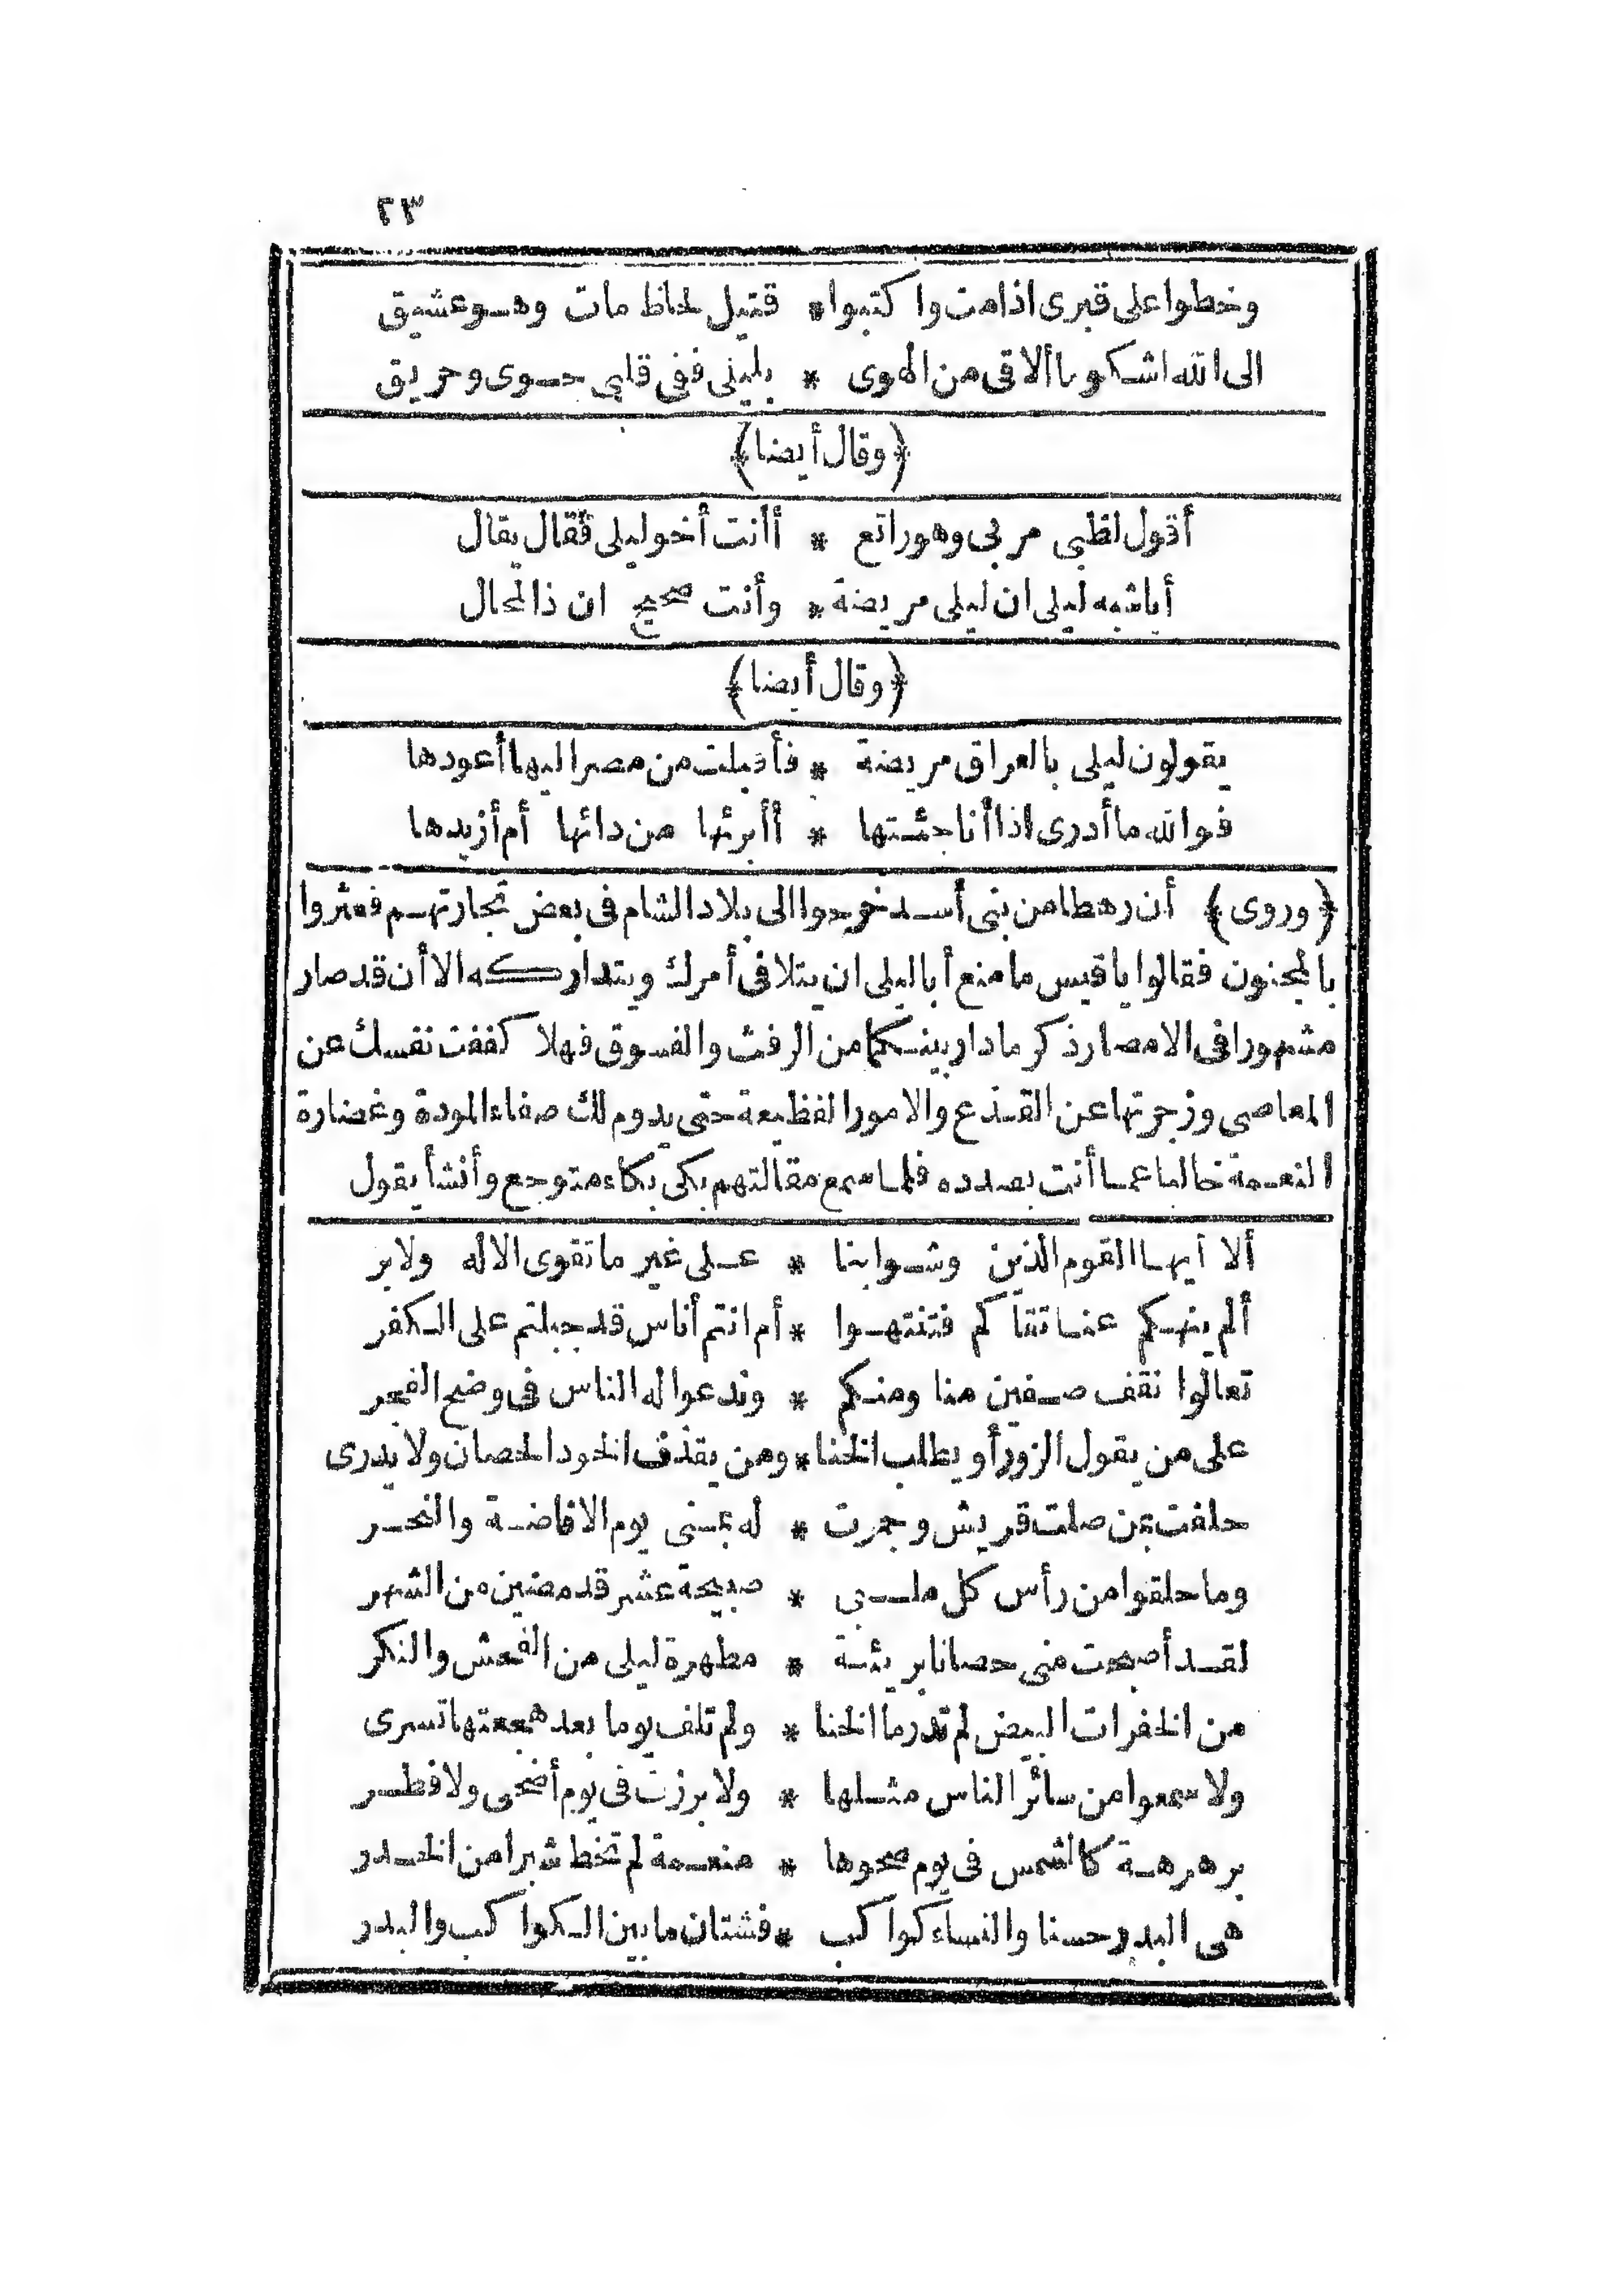 ٢٣
وخطوا على قبرى اذامت واكتبوا * قتيل لحاظ مات وهو عشيق
الى الله اشكو ما ألاقى من الهوى * بليلى ففى قلبى جوى وحريق
﴿وقال أيضا﴾
أقول لظبى مر بى وهو راتع * أأنت أخو ليلى فقال يقال
أيا شبه ليلى ان ليلى مريضة * وأنت صحيح ان ذا لمحال
﴿وقال أيضا﴾
يقولون ليلى بالعراق مريضة * فأقبلت من مصر اليها أعودها
فوالله ما أدرى اذا أنا جئتها * أأبرئها من دائها أم أزيدها
﴿وروى﴾ أن رهطا من بنى أسد خرجوا الى بلاد الشام فى بعض تجارتهم فعثروا
بالمجنون فقالوا يا قيس ما منع أبا ليلى ان يتلافى أمرك ويتداركه الا أن قد صار
مشهورا فى الامصار ذكر ما دار بينكما من الرفث والفسوق فهلا كففت نفسك عن
المعاصى وزجرتها عن القذع والامور الفظيعة حتى يدوم لك صفاء المودة وغضارة
النعمة خاليا عما أنت بصدده فلما سمع مقالتهم بكى بكاء متوجع وأنشأ يقول
ألا أيها القوم الذين وشوا بنا * على غير ما تقوى الاله ولا بر
ألم ينهكم عنا تقاكم فتنتهوا * أم انتم أناس قد جبلتم على الكفر
تعالوا نقف صفين منا ومنكم * وندعو اله الناس فى وضح الفجر
على من يقول الزور أو يطلب الخنا * ومن يقذف الخود الحصان ولا يدرى
حلفت بمن صلت قريش وجمرت * له بمنى يوم الافاضة والنحر
وما حلقوا من رأس كل ملبى * صبيحة عشر قد مضين من الشهر
لقد أصبحت منى حصانا بريئة * مطهرة ليلى من الفحش والنكر
من الخفرات البيض لم تدر ما الخنا * ولم تلف يوما بعد هجعتها تسرى
ولا سمعوا من سائر الناس مثلها * ولا برزت فى يوم أضحى ولا فطر
برهرهة كالشمس فى يوم صحوها * منعمة لم تخط شبرا من الخدر
هى البدر حسنا والنساء كواكب * فشتان ما بين الكواكب والبدر